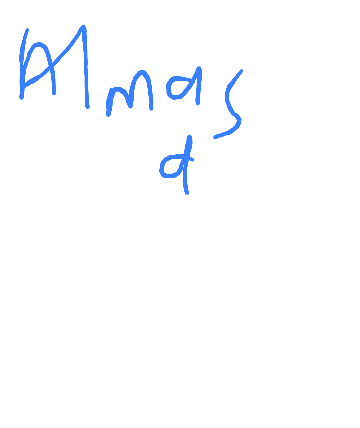 Almas
d